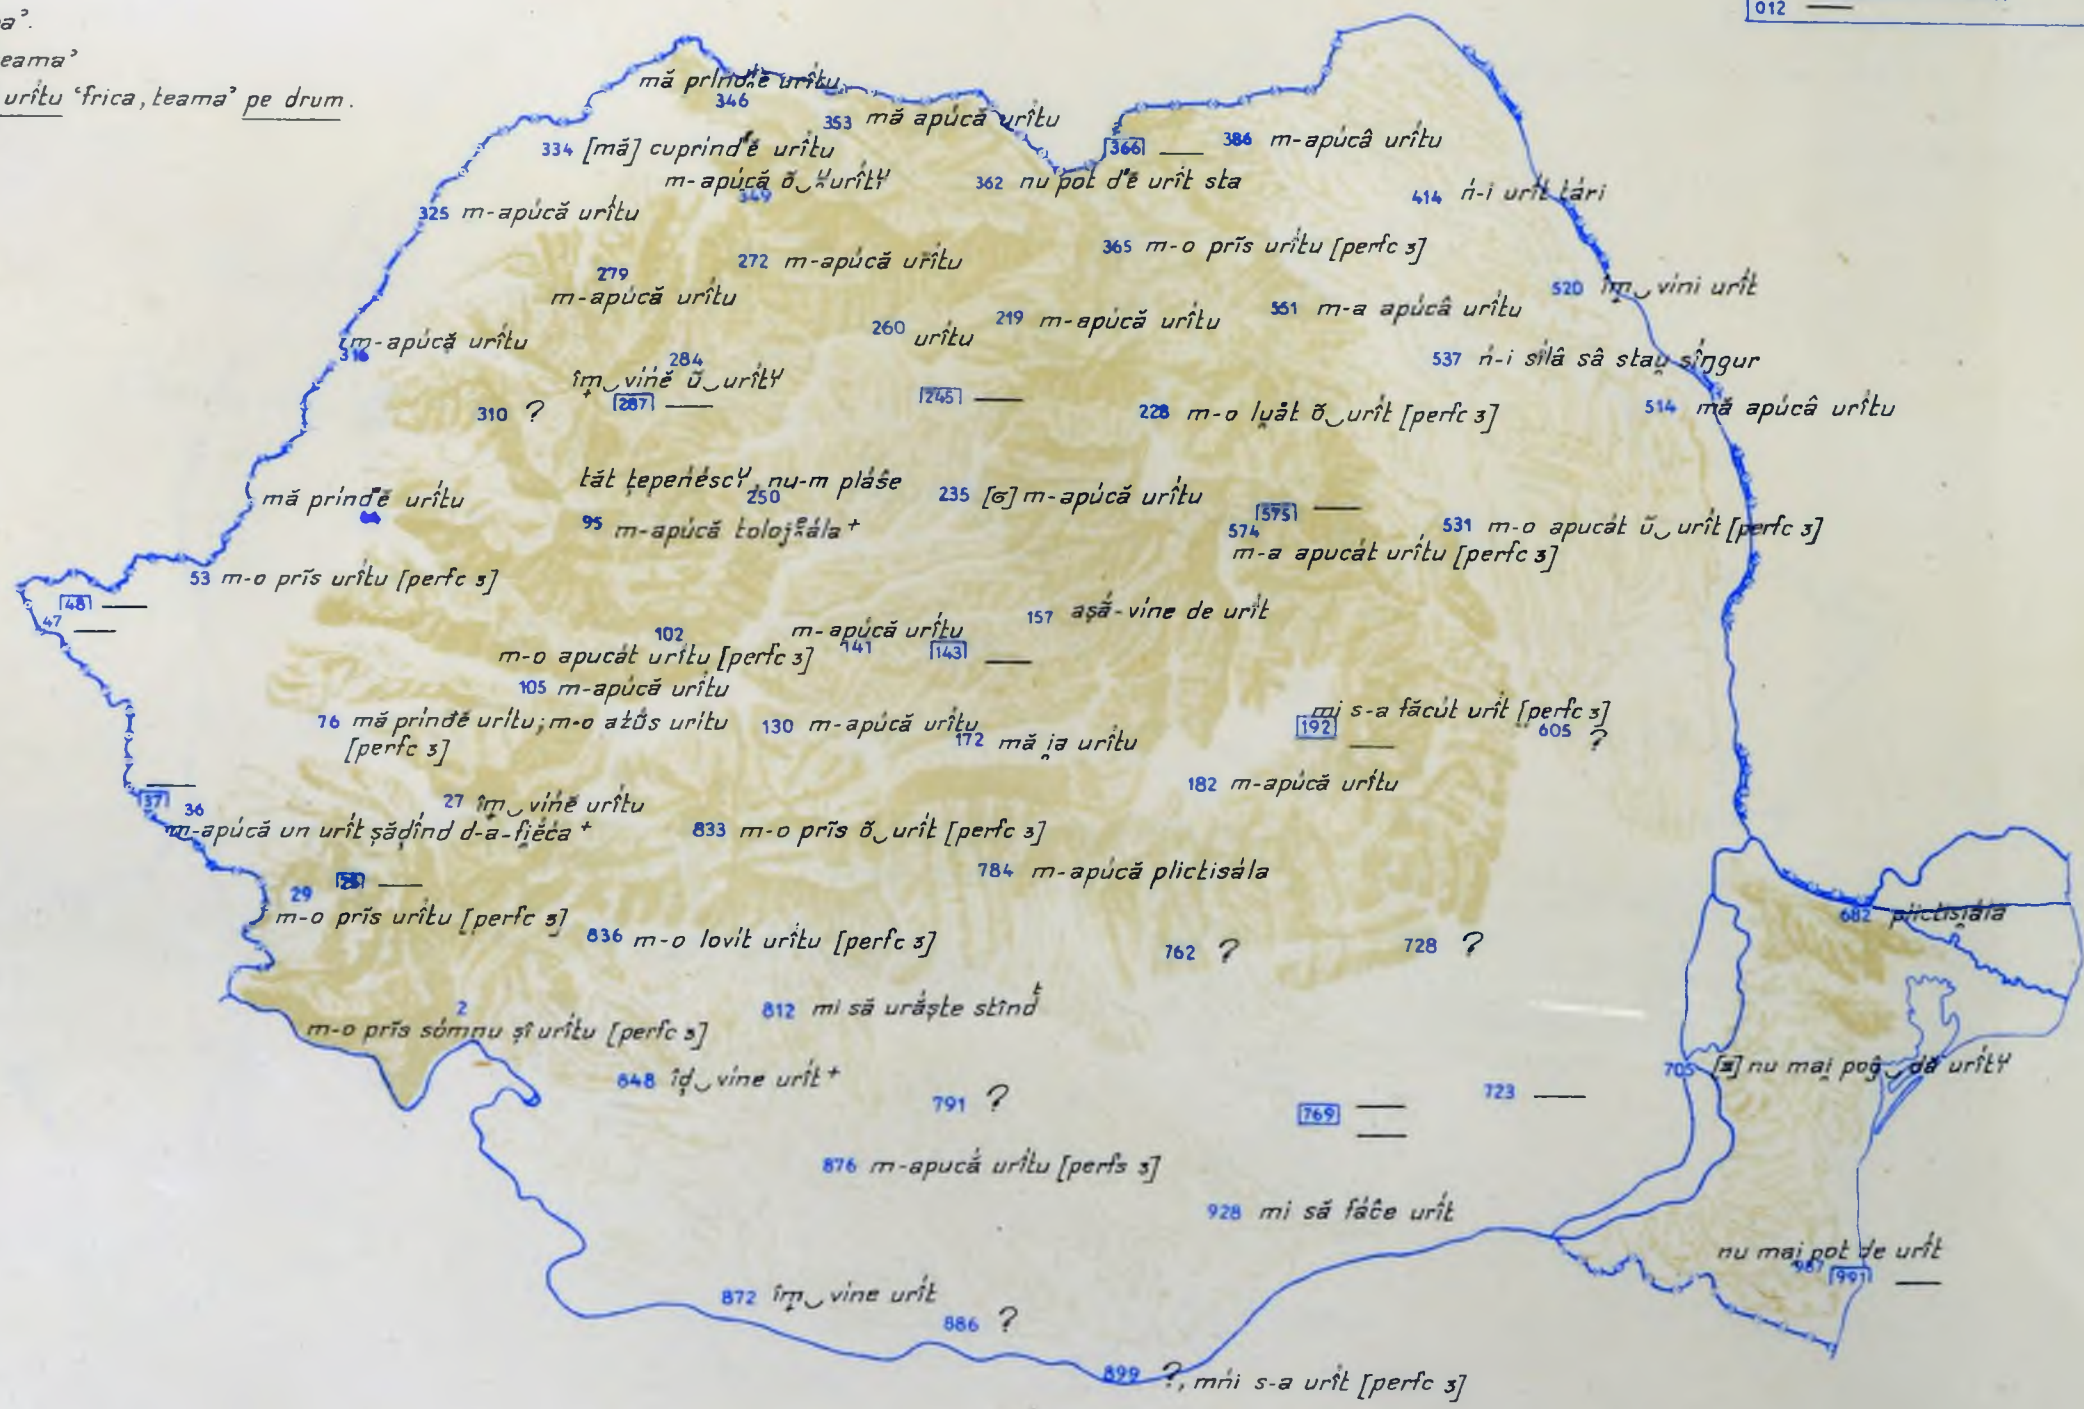 012 —
eama’
urîtu ‘frica, teama’ pe drum.
346
353 mă apúcă urî́tu
334 [mă] cuprind'ĕ urî́tu
[366] —
386 m-apúcâ urî́tu
349
362 nu pot d'e urît sta
414 ń-i urî́t tári
325 m-apúcă urî́tu
365 m-o prĩs urî́tu [perfc 3]
272 m-apúcă urî́tu
279
m-apúcă urî́tu
520 îm‿vini urî́t
316 m-apúcă urî́tu
260 urî́tu
219 m-apúcă urî́tu
551 m-a apúcâ urî́tu
284
îm‿vińĕ ũ‿urî́tʸ
537 ń-i sílâ sâ stau̯ sîŋgur
310 ?
[287] —
[245] —
228 m-o lu̯åt õ‿urî́t [perfc 3]
514 mă apúcâ urî́tu
tăt țepeńéscʸ, nu-m pláše
250
mă prind'ĕ urî́tu
235 [ɞ] m-apúcă urî́tu
[575] —
95 m-apúcă
574
m-a apucát urî́tu [perfc 3]
531 m-o apucát ũ‿urî́t [perfc 3]
53 m-o prĩs urî́tu [perfc 3]
[48] —
47 —
157 așắ-vine de urî́t
102
m-o apucát urî́tu [perfc 3]
m-apúcă urî́tu
141
[143] —
105 m-apúcă urî́tu
76 mă prinďĕ urî́tu; m-o ažũs urî́tu
[perfc 3]
130 m-apúcă urî́tu
172 mă i̯a urî́tu
mi s-a făcút urî́t [perfc 3]
[192] —
605 ?
182 m-apúcă urî́tu
[37] —
36
m-apúcă un urî́t șăḍînd d-a-fi̯ĕ́ća⁺
27 îm‿vińĕ urî́tu
833 m-o prĩs õ‿urî́t [perfc 3]
784 m-apúcă plictisála
29
m-o prĩs urî́tu [perfc 3]
682 plictisi̯álă
836 m-o lovít urî́tu [perfc 3]
762 ?
728 ?
2
m-o prĩs sómnu șî urî́tu [perfc 3]
812 mi să urắște stîndᵗ
848 îḍ‿vine urî́t⁺
705 nu mai̯ pog‿dă urî́tʸ
791 ?
[769] —
—
723 —
876 m-apucắ urî́tu [perfs 3]
928 mi să fáĉe urî́t
nu mai̯ pot de urî́t
987 [991] —
872 îm‿vine urî́t
886 ?
899 ?, mńi s-a urî́t [perfc 3]